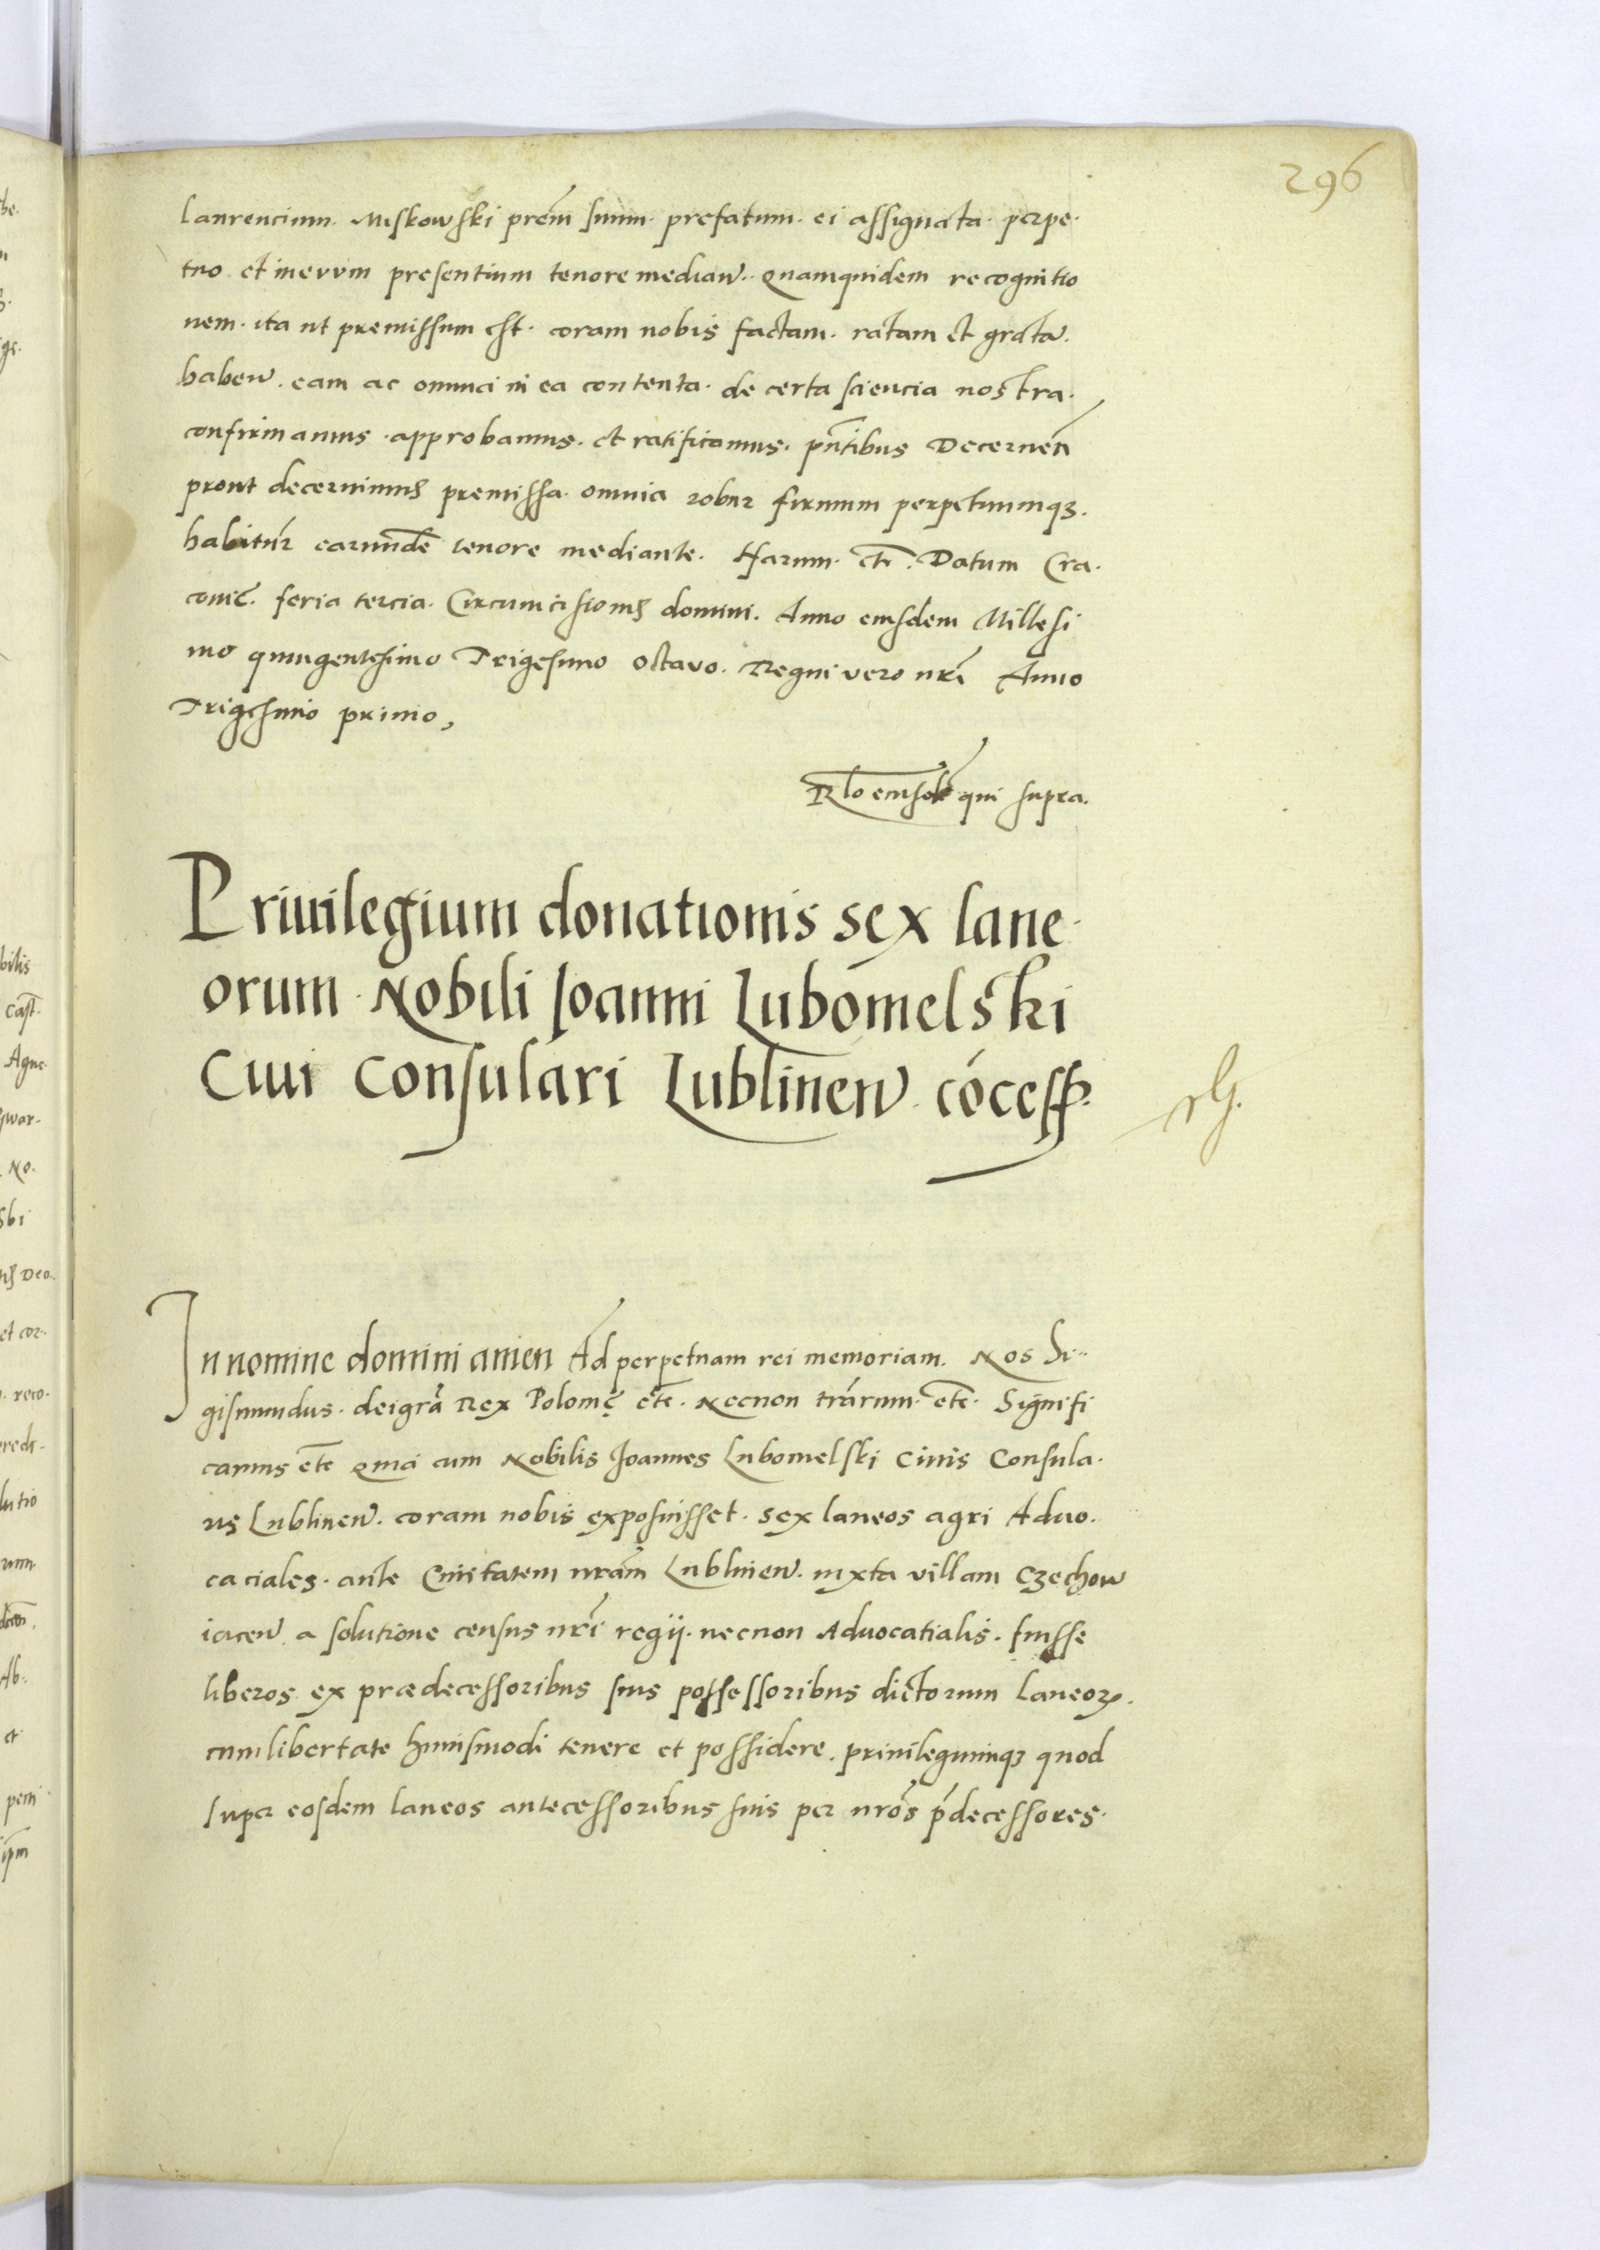 296
laurencium. Miskowski prēm suum. prefatum. ei assignata. perpe.
tuo et inevvm presentium tenore median. Quamquidem recognitio
nem. ita ut premissum est. coram nobis factam. ratam et gratā.
haben. eam ac omnia in ea contenta. de certa sciencia nostra.
confirmamus. approbamus. et ratificamus. pn̄tibus Decernen̄
prout decernimus premissa. omnia robur firmum perpetuumqꝫ.
habitur̄ earundē tenore mediante. Harum. etc̄. Datum Cra.
couię. feria tercia. Circumcisionis domini. Anno eiusdem Millesi
mo quingentesimo Trigesimo octavo. Regni vero nr̄i Anno
Trigesimo primo,
Rlo eiusdē qui supra.
Priuilegium donationis sex lane.
orum. Nobili Ioanni Lubomelski
Ciui Consulari Lublinen. cōcess.
In nomine domini amen Ad perpetuam rei memoriam. Nos Si.
gismundus. dei gr̄a Rex Polonię etc̄. Necnon trārum. etc̄. Signifi
camus etc̄ Quia cum Nobilis Joannes Lubomelski Ciuis Consula.
ris Lublinen. coram nobis exposuisset. sex laneos agri Aduo.
caciales. ante Ciuitatem nrām Lublinen. iuxta villam Czechow
iacen. a solutione census nr̄i regij. necnon Aduocatialis. fuisse
liberos. ex prædecessoribus suis possessoribus dictorum laneoꝝ.
cum libertate huiusmodi tenere et possidere. priuilegiumqꝫ quod
super eosdem laneos antecessoribus suis per nrōs p̄decessores.